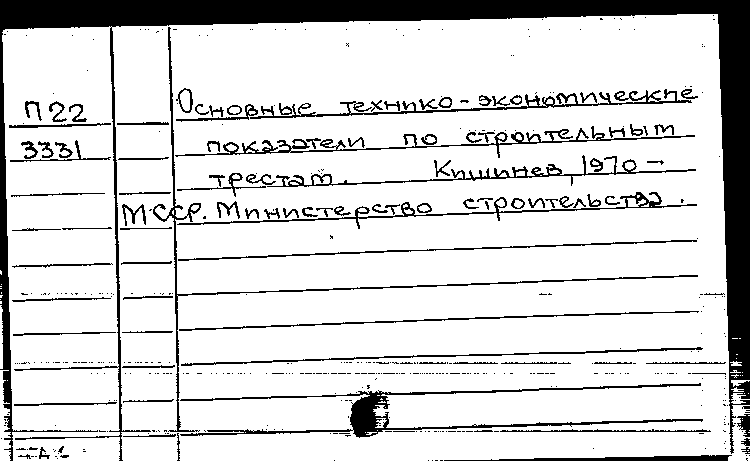 П22 Основные технико-экономические
3331 показатели по строительным
трестам. Кишинев, 1970 -
МССР. Министерство строительства.